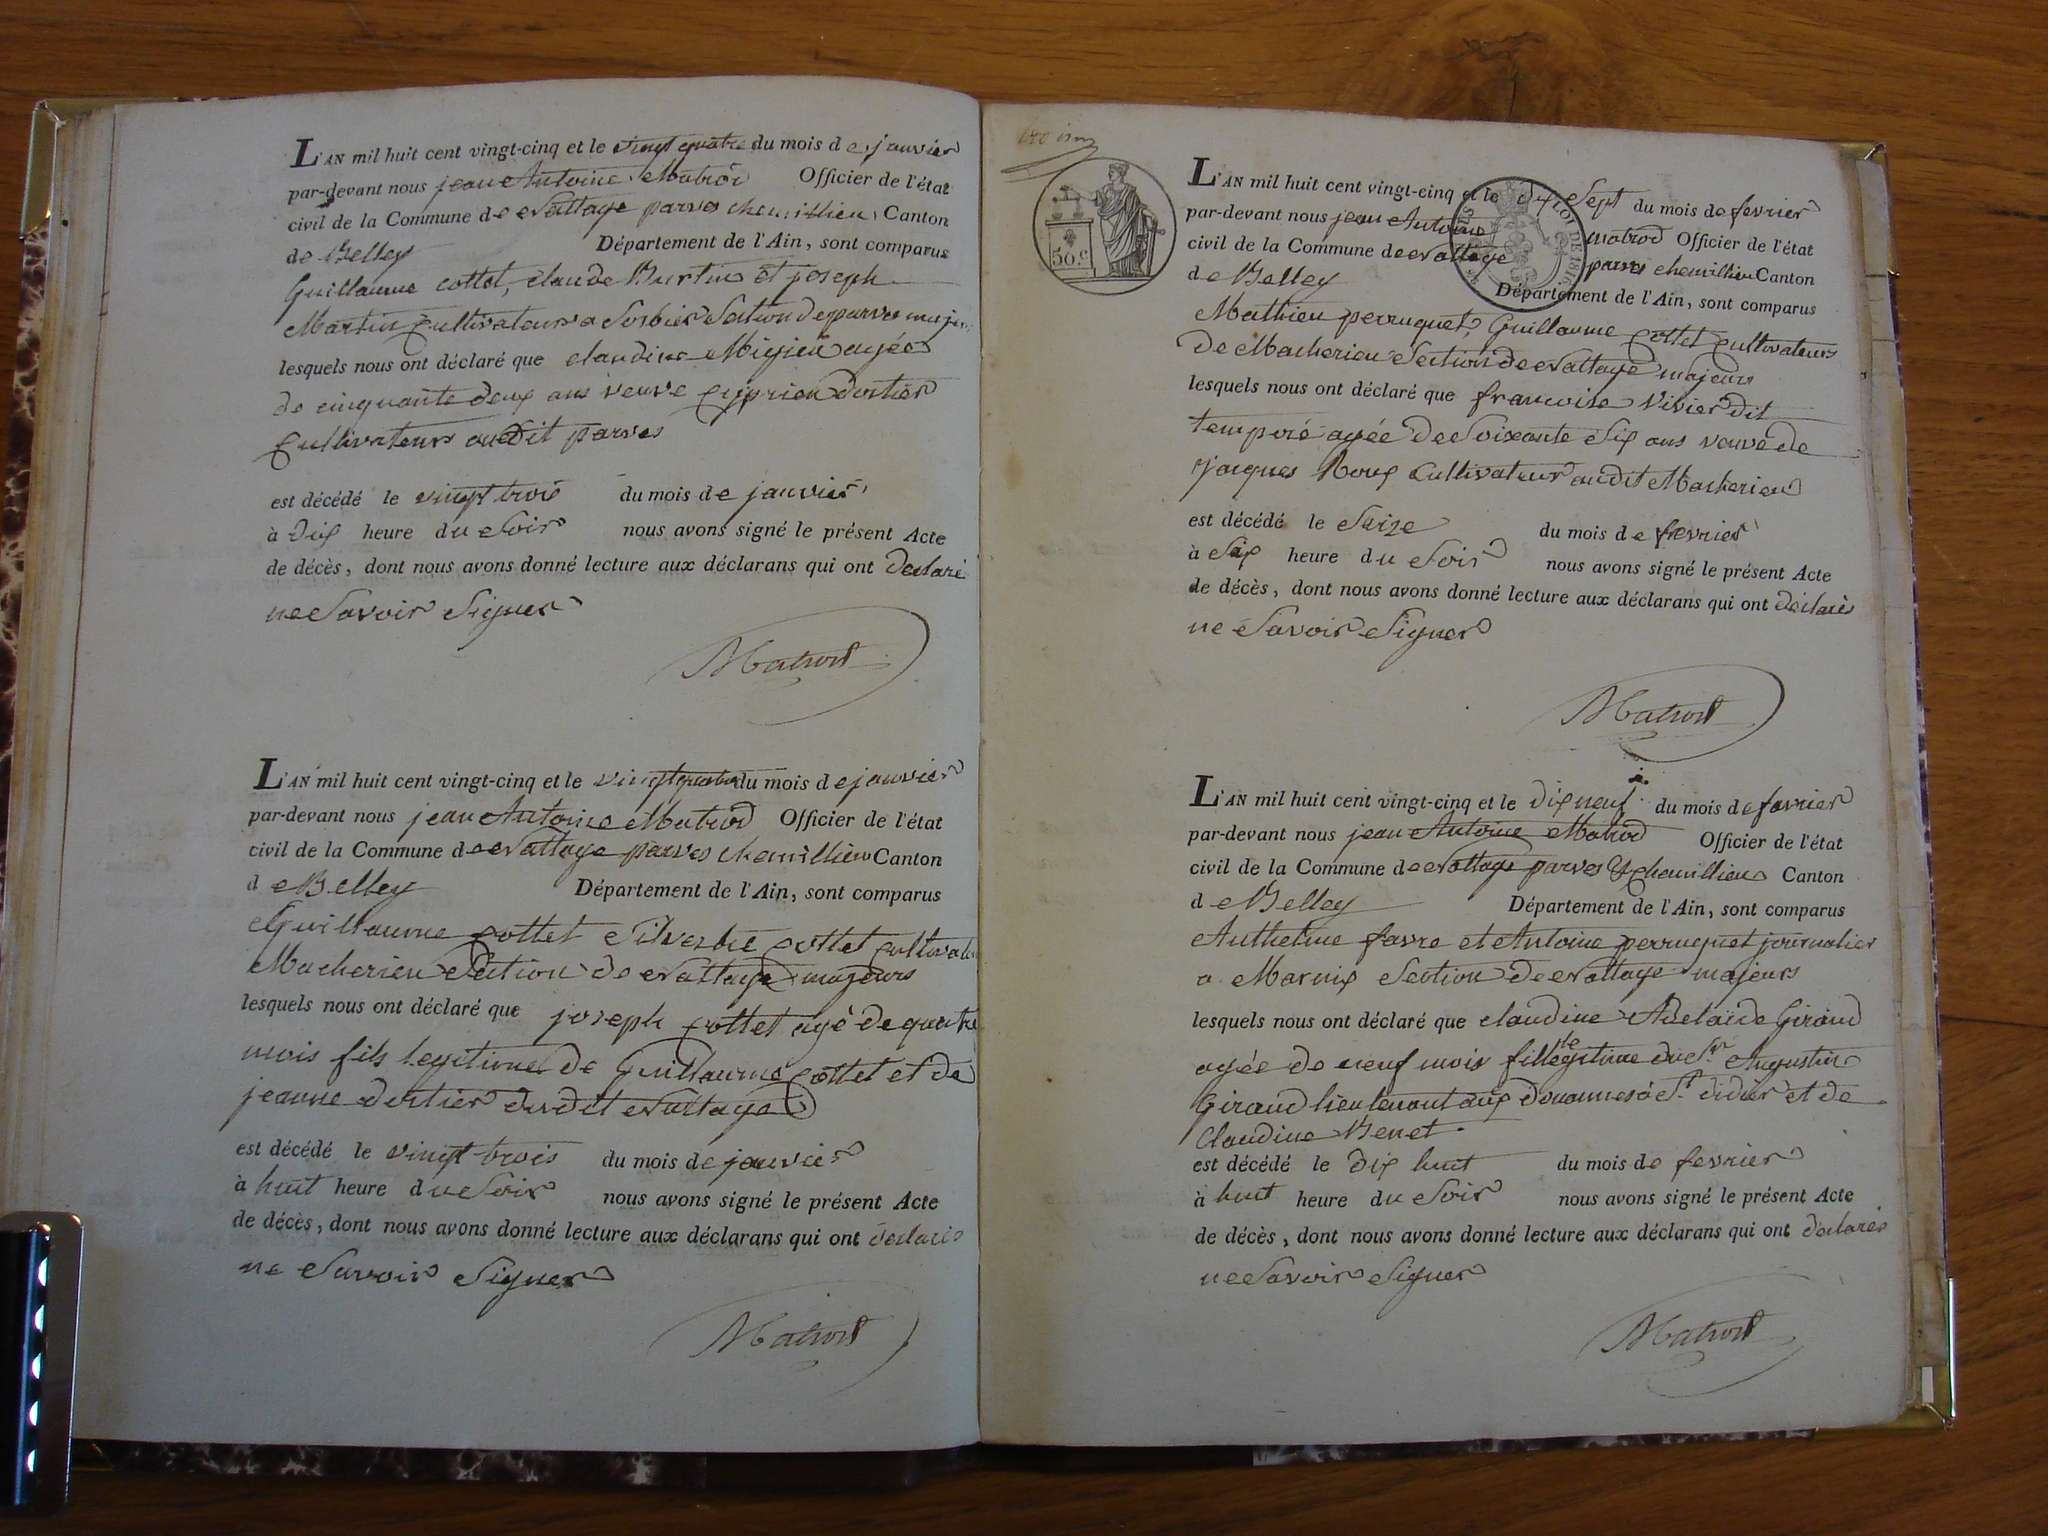 L'AN mil huit cent vingt-cinq et le vingt quatre du mois de janvier
par-devant nous jean Antoine Matrod Officier de l'état
civil de la Commune de Nattage parves chemillieu Canton
de Belley Département de l'Ain, sont comparus
Guillaume cottet, claude Burtin et joseph
Martin Cultivateurs a Sorbier Section de parves
lesquels nous ont déclaré que claudine Migieu agée
de cinquante deux ans veuve Cyprien dortier
Cultivateurs audit parves
est décédé le vingt trois du mois de janvier
à dix heure du Soir nous avons signé le présent Acte
de décès, dont nous avons donné lecture aux déclarans qui ont declaré
ne Savoir Signer
Matrod
L'AN mil huit cent vingt-cinq et le vingt quatre du mois de janvier
par-devant nous jean Antoine Matrod Officier de l'état
civil de la Commune de Nattage parves chemillieu Canton
de Belley Département de l'Ain, sont comparus
Guillaume Cottet Silvestre Cottet
Macherieu Section de Nattage majeurs
lesquels nous ont déclaré que joseph Cottet agé de quatre
mois fils legitime de Guillaume Cottet et de
jeanne dortier dudit Nattage
est décédé le vingt trois du mois de janvier
à huit heure du Soir nous avons signé le présent Acte
de décès, dont nous avons donné lecture aux déclarans qui ont declarés
ne Savoir Signer
Matrod
50.c
LOI DE 1816
L'AN mil huit cent vingt-cinq et le dix Sept du mois de fevrier
par-devant nous jean Antoine matrod Officier de l'état
civil de la Commune de Nattage parves chemillieu Canton
de Belley Département de l'Ain, sont comparus
Mathieu perruquet, Guillaume Cottet Cultivateurs
de Macherieu Section de Nattage majeurs
lesquels nous ont déclaré que francoise Vivier dit
agée de Soixante Six ans veuve de
jacques Roux Cultivateur audit Macherieu
est décédé le Seize du mois de fevrier
à Six heure du Soir nous avons signé le présent Acte
de décès, dont nous avons donné lecture aux déclarans qui ont déclarés
ne Savoir Signer
Matrod
L'AN mil huit cent vingt-cinq et le dix neuf du mois de fevrier
par-devant nous jean Antoine Matrod Officier de l'état
civil de la Commune de Nattage parves & chemillieu Canton
de Belley Département de l'Ain, sont comparus
Anthelme favre et Antoine perruquet journalier
a Marnix Section de Nattage majeurs
lesquels nous ont déclaré que claudine Adelaide Giraud
agée de neuf mois fille legitime du Sr Augustin
Giraud lieutenant aux douannes à St didier et de
Claudine Benet.
est décédé le dix huit du mois de fevrier
à huit heure du Soir nous avons signé le présent Acte
de décès, dont nous avons donné lecture aux déclarans qui ont declarés
ne Savoir Signer
Matrod